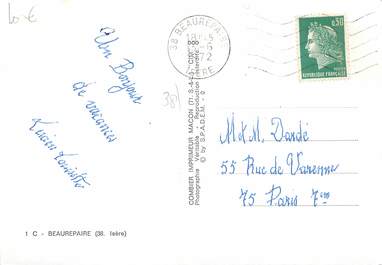 10 €
38 BEAUREPAIRE
ISÈRE
0,30
RÉPUBLIQUE FRANÇAISE
Un Bonjour
de vacances
381
COMBIER IMPRIMEUR MACON (71 S.-&-L.) "CIM"
Photographie Véritable - Reproduction Interdite
© by S.P.A.D.E.M.
M & M. Dardé
55 Rue de Varenne
75 Paris 7em
1 C - BEAUREPAIRE (38. Isère)